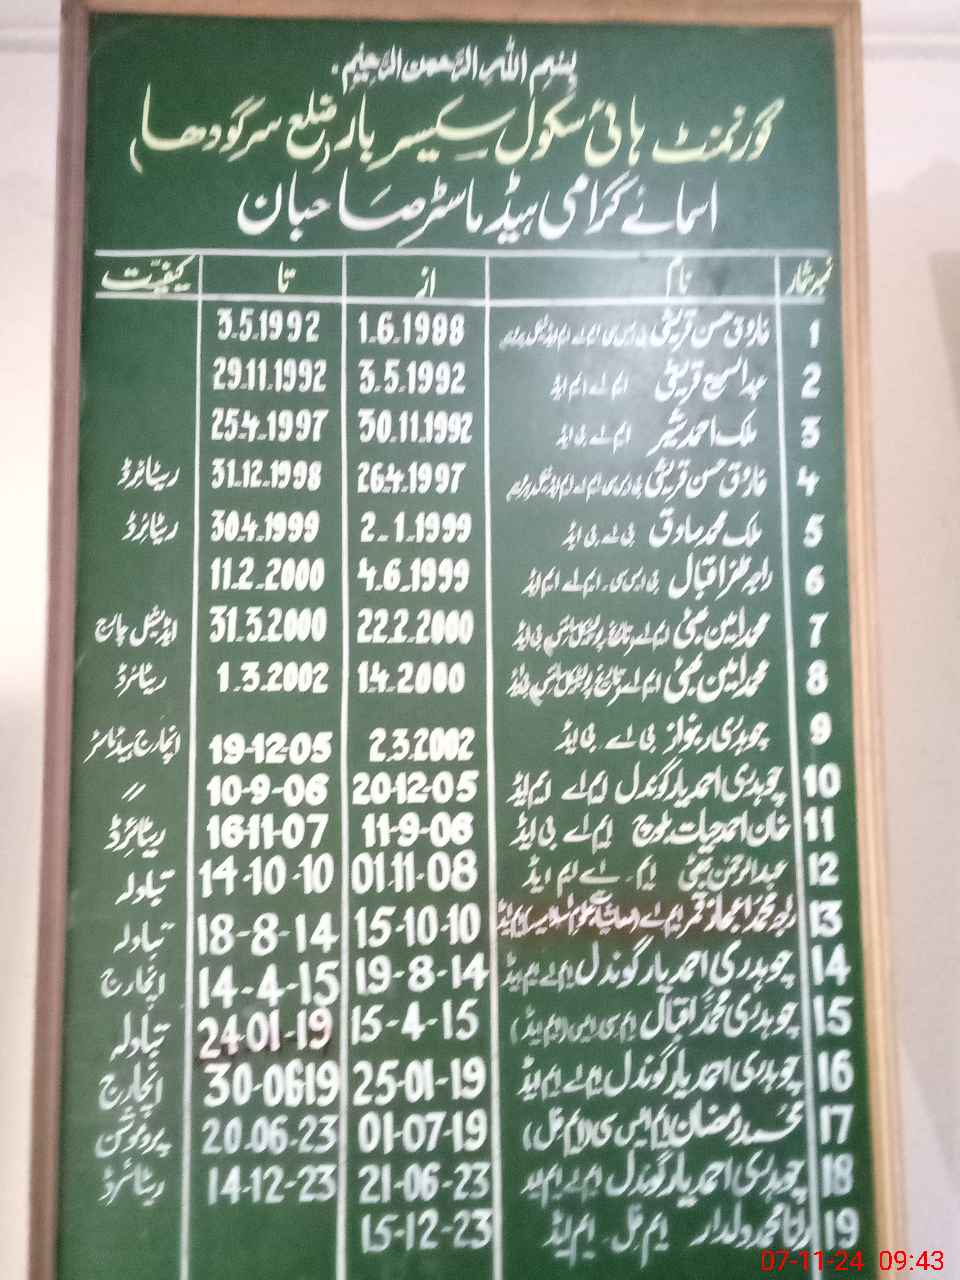 بسم اللہ الرحمن الرحیم
گورنمنٹ ہائی سکول سکیسر بار (ضلع سرگودھا)
اسمائے گرامی ہیڈ ماسٹر صاحبان
نمبر شمار نام از تا کیفیت
1 فاروق حسن قریشی 1.6.1988 3.5.1992
2 عبدالسمیع قریشی ایم اے ایم ایڈ 3.5.1992 29.11.1992
3 ملک احمد شیر ایم اے بی ایڈ 30.11.1992 25.4.1997
4 فاروق حسن قریشی 26.4.1997 31.12.1998 ریٹائرڈ
5 ملک محمد صادق بی اے بی ایڈ 2.1.1999 30.4.1999 ریٹائرڈ
6 راجہ ظفر اقبال بی ایس سی۔ ایم اے ایم ایڈ 4.6.1999 11.2.2000
7 محمد امین بھٹی ایم اے بی ایڈ 22.2.2000 31.3.2000 ایڈیشنل چارج
8 محمد امین بھٹی ایم اے بی ایڈ 1.4.2000 1.3.2002 ریٹائرڈ
9 چوہدری ربنواز بی اے بی ایڈ 2.3.2002 19-12-05 انچارج ہیڈ ماسٹر
10 چوہدری احمد یار گوندل ایم اے ایم ایڈ 20-12-05 10-9-06 〃
11 خان احمد حیات بلوچ ایم اے بی ایڈ 11-9-06 16-11-07 ریٹائرڈ
12 عبدالرحمن بھٹی ایم۔اے ایم ایڈ 01-11-08 14-10-10 تبادلہ
13 راجہ محمد اعجاز قمر ایم اے ایم ایڈ 15-10-10 18-8-14 تبادلہ
14 چوہدری احمد یار گوندل ایم اے ایم ایڈ 19-8-14 14-4-15 انچارج
15 چوہدری محمد اقبال ایم سی ایس (ایم ایڈ) 15-4-15 24-01-19 تبادلہ
16 چوہدری احمد یار گوندل ایم اے ایم ایڈ 25-01-19 30-0619 انچارج
17 محمد رمضان ایم ایس سی (ایم فل) 01-07-19 20-06-23 پروموشن
18 چوہدری احمد یار گوندل ایم اے ایم ایڈ 21-06-23 14-12-23 ریٹائرڈ
19 رانا محمد دلدار ایم فل۔ ایم ایڈ 15-12-23
07-11-24 09:43